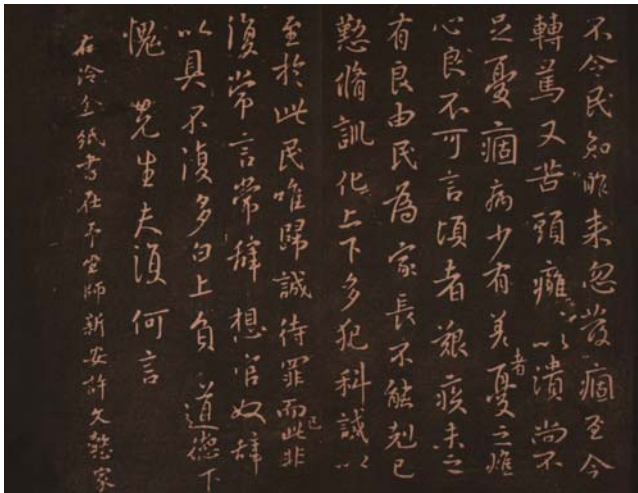 不令民知昨来忽發痼至今
轉篤又苦頭癰〻以潰尚不
足憂痼病少有差者憂之燋
心良不可言頃者艱疾未之
有良由民為家長不能剋己
懃脩訓化上下多犯科誡以
至於此民唯歸誠待罪而已此非
復常言常辭想官奴辭
以具不復多白上負 道德下
愧 先生夫復何言
右冷金紙書在予塾師新安許文懿家